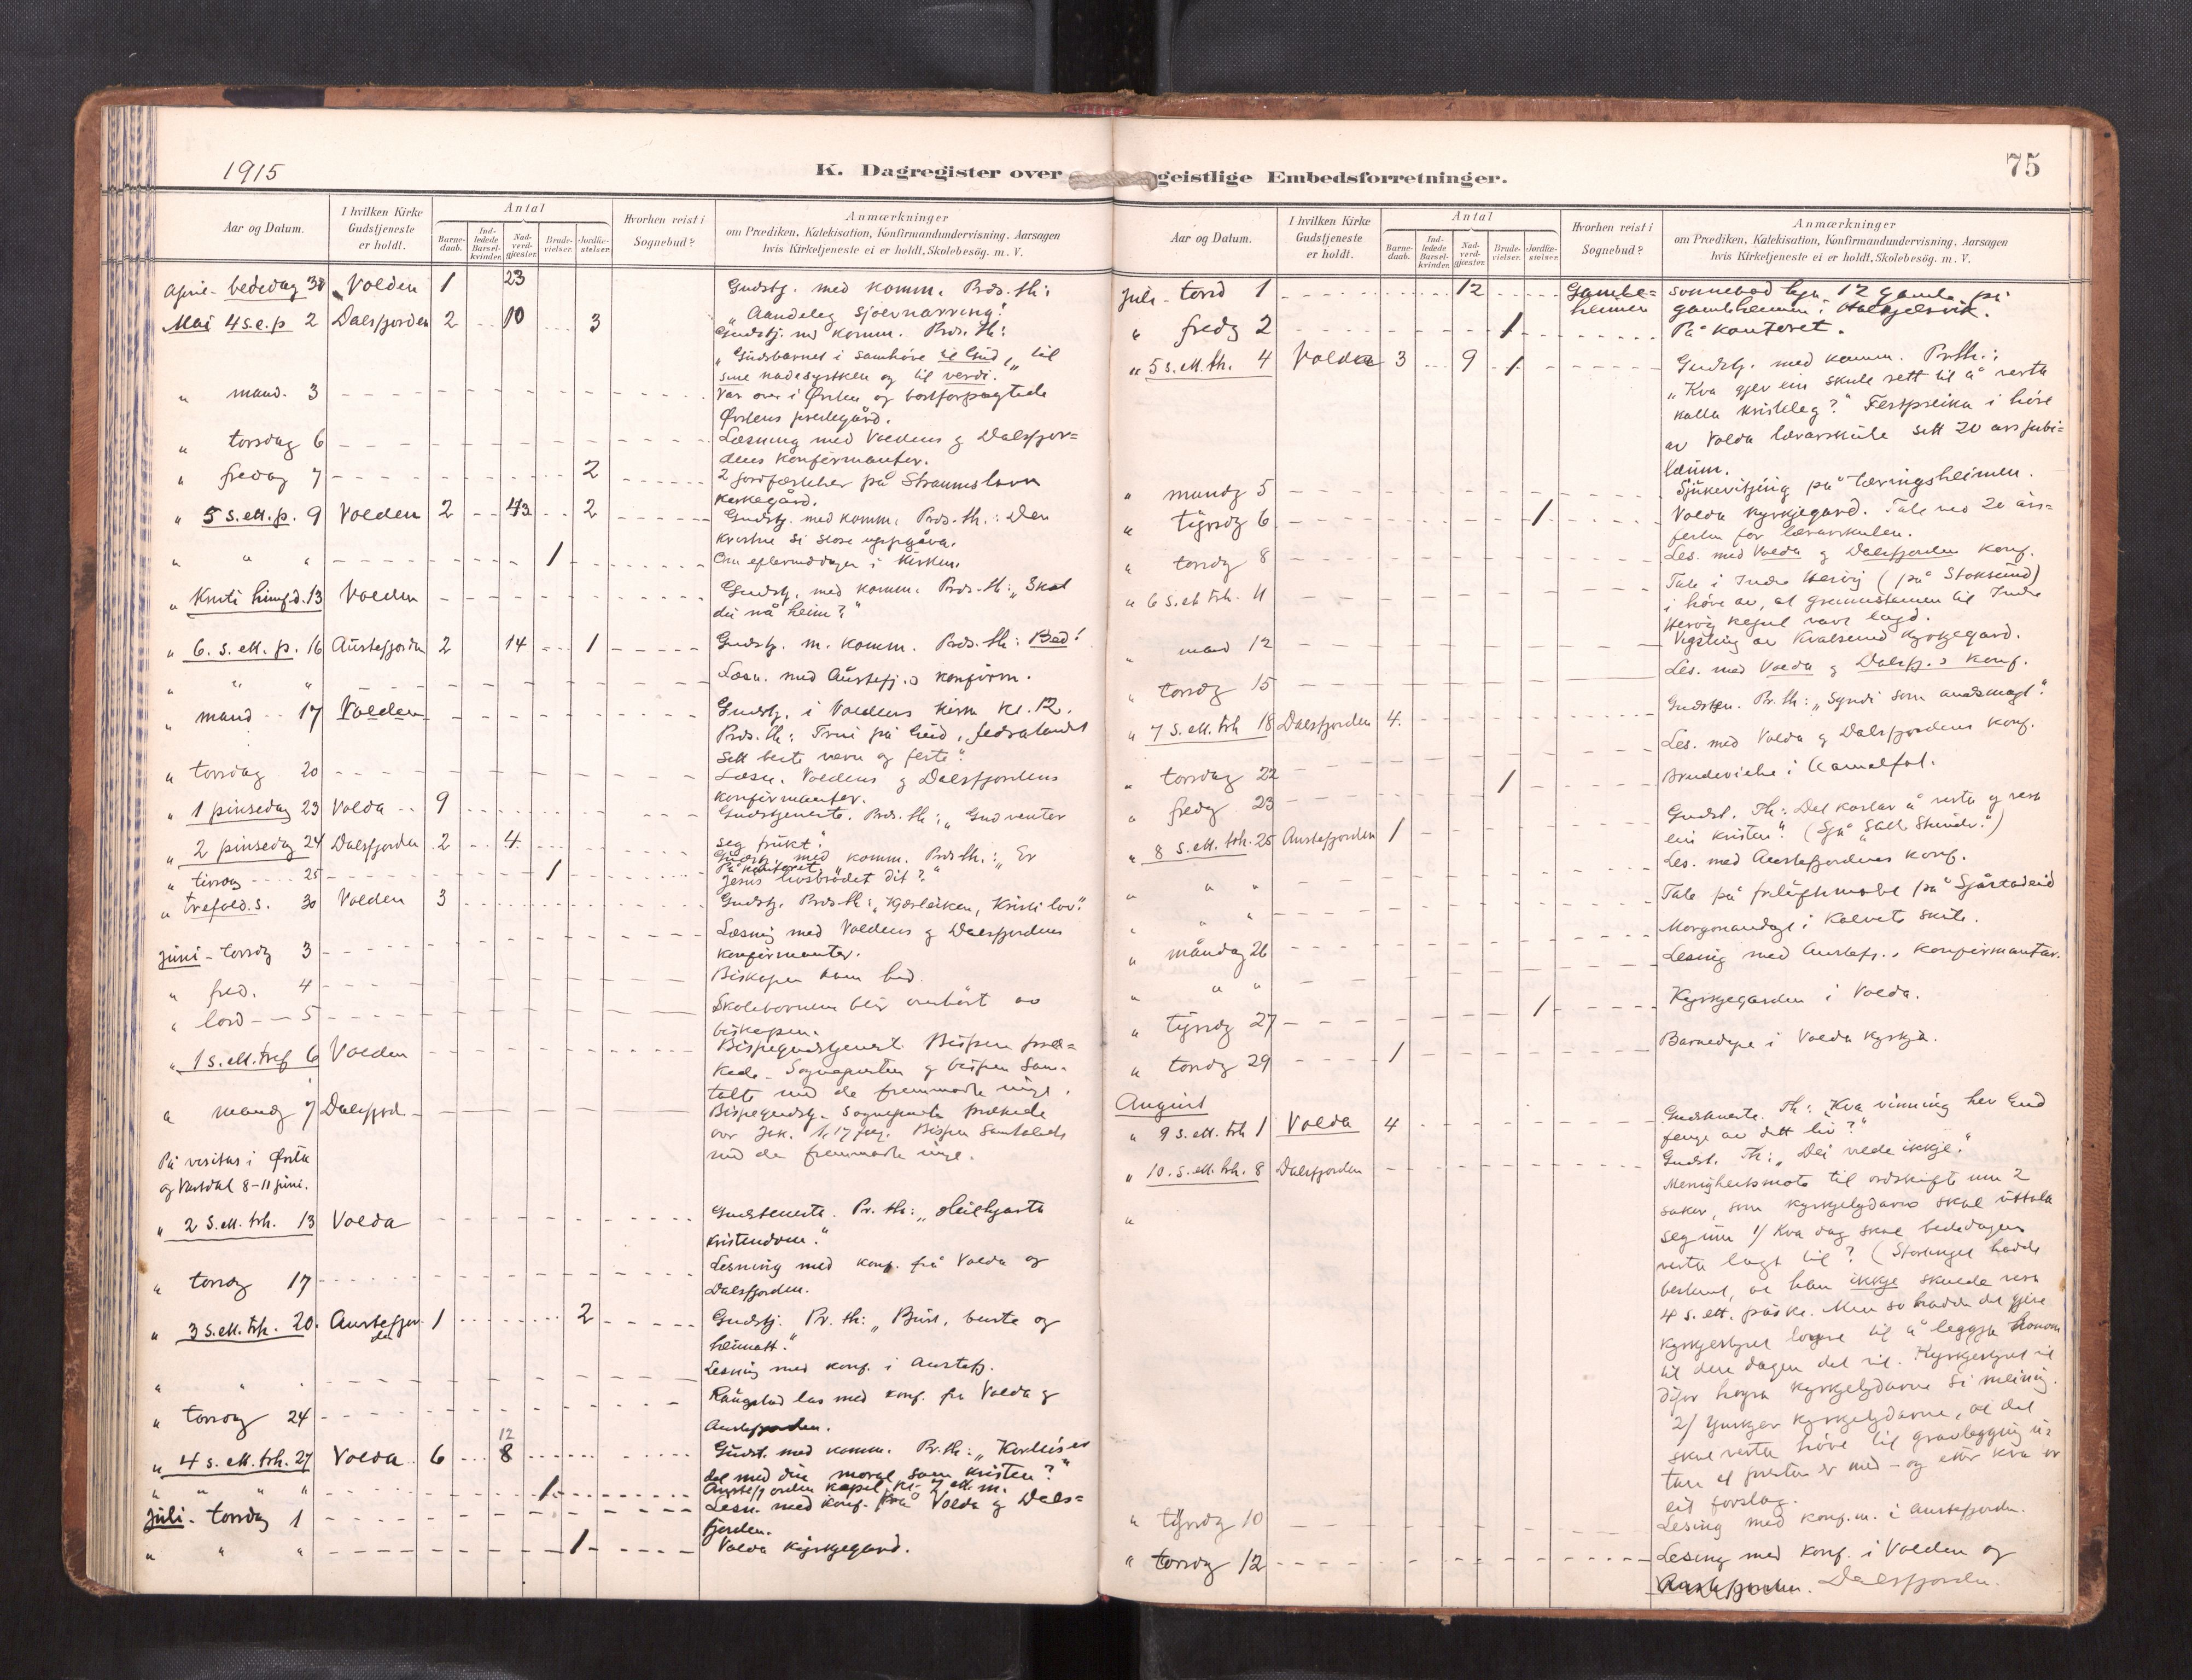 1915
K. Dagregister over
Aar og Datum.
I hvilken Kirke Gudstjeneste er holdt.
Antal
Barne-daab.
Ind-ledede Barsel-kvinder.
Nad-verd-gjæster.
Brude-vielser.
Jordfæ-stelser.
Hvorhen reist i Sognebud?
Anmærkninger
om Prædiken, Katekisation, Konfirmandundervisning. Aarsagen
hvis Kirketjeneste ei er holdt, Skolebesög. m. V.
April - bededag 30 Volden 1 23 Gudstj. med komm. Præs. th:
„Aandeleg sjoernæring."
Mai 4 s.e.p. 2 Dalsfjorden 2 10 3 Gudstj. m komm. Præs. th:
„Gudsbarnet i samhøve til Gud, til
sine nadesystken og til verdi.
" mand. 3 Var over i Ørsten og bortforpagtede
Ørstens prestegård.
" torsdag 6 Læsning med Voldens og Dalsfjor=
dens konfirmanter.
" fredag 7 2 2 jordfæstelser på Straumshavn
kirkegård.
" 5 s. ett. p. 9 Volden 2 43 2 Gudstj. med komm. Præs. th.: Den
kristne si store uppgåva.
" " " 1 Om eftermiddagen i kirken.
" Kristi himfd. 13 Volden Gudstj. med komm. Præs. th: „Skal
du nå heim?"
" 6. s. ett. p. 16 Austefjorden 2 14 1 Gudstj. m. komm. Præs. th: Bed!
" " " Læsn. med Austefj.s konfirm.
" mand 17 Volden Gudstj. i Voldens kirke kl. 12.
Præs. th: Trui på Gud, fedralandet
sitt beste vern og feste."
" torsdag 20 Læsn. Voldens og Dalsfjordens
konfirmanter.
" 1 pinsedag 23 Volda 9 Gudstjeneste. Præs. th: „Gud venter
seg frukt."
" 2 pinsedag 24 Dalsfjorden 2 4 Gudstj. med komm. Præs th.: „Er
Jesus livsbrødet dit?"
" tirsdag 25 1 På kontoret
" trefold. s. 30 Volden 3 Gudstj. Præs. th: „Kjærleiken, Kristi lov."
Juni - torsdag 3 Læsning med Voldens og Dalsfjordens
konfirmanter.
" fred. 4 Biskopen kom hid.
" lørd 5 Skolebornene blev overhørt av
biskopen.
" 1 s. ett. tref 6 Volden Bispegudstjenest. Bispen præ=
kede. Sognepresten og bispen sam=
talte med de fremmøtte unge.
" mandag 7 Dalsfjord. Bispegudstj. Sognepresten prækede
over Jak. 1, 17 flg. Bispen samtalede
med de fremmøtte unge.
På visitas i Ørsta
og Vartdal 8-11 juni.
" 2 s. ett. trh. 13 Volda Gudsteneste. Pr. th: „Heilhjarta
kristendom."
" torsdag 17 Lesning med konf. frå Volda og
Dalsfjorden.
" 3 s. ett. trh. 20. Austefjor den 1 2 Gudstj. Pr. th: „Burt, burte og
heimatt."
" " " Lesning med konf. i Austefj.
" torsdag 24 Raugstad las med konf. fra Volda og
Austefjorden.
" 4 s. ett. trh. 27 Volda 6 12 8 Gudst. med komm. Pr. th: „Korleis er
det med din moral som kristen?"
" " " " 1 Austefjorden kapel kl. 7 ett. m.
Juli - torsdag 1 Lesn. med konf. frå Volda og Dals=
fjorden.
" " " 1 Volda kyrkjegard.
75
geistlige Embedsforretninger.
Aar og Datum.
I hvilken Kirke Gudstjeneste er holdt.
Antal
Barne-daab.
Ind-ledede Barsel-kvinder.
Nad-verd-gjæster.
Brude-vielser.
Jordfæ-stelser.
Hvorhen reist i Sognebud?
Anmærkninger
om Prædiken, Katekisation, Konfirmandundervisning, Aarsagen
hvis Kirketjeneste ei er holdt, Skolebesög. m. V.
Juli - torsd 1 12 Gamle=heimen sonnebod hjå 12 gamle på
gamleheimen i
" fredag 2 1 På kontoret.
" 5 s. ett. th. 4 Volda 3 9 1 Gudstj. med komm. Pr. th.:
„Kva gjer ein skule rett til å verta
kalla kristeleg?" Festpreika i høve
av Volda lærarskule sitt 20 års jubi=
læum.
" mandag 5 Sjukevitjing på læringsheimen.
" tysdag 6 1 Volda kyrkjegard. Tale ved 20 års=
festen for lærarskulen.
" torsdag 8 Les. med Volda og Dalsfjorden konf.
" 6 s. ett trh. 11 Tale i Indre Herøy (på Stoksund)
i høve av, at grunnstenen til Indre
Herøy kapel vart lagd.
" mand 12 Vigsling av Kvalsund kyrkjegard.
" torsdag 15 Les. med Volda og Dalsfj.s konf.
" 7 s. ett. trh 18 Dalsfjorden 4. Gudsten. Pr. th: „Syndi som andsmagt."
" torsdag 22 Les. med Volda og Dalsfjordens konf.
" fredag 23 1 Brudevielse i
" 8 s. ett. trh. 25 Austefjorden 1 Gudst. Th: „Det kostar å verta og vera
ein kristen." (Sjå „Stille Stunder.")
" " " Les. med Austefjordens konf.
" " Tale på friluftsmøte på Sjåstadeid
" måndag 26 Morgonandagt i Kalvets skule.
" " " Lesing med Austefj.s konfirmantar.
" tysdag 27 1 Kyrkjegarden i Volda.
" torsdag 29 1 Barnedåpe i Volda kyrkja.
August
" 9 s. ett. trh 1 Volda 4 Gudsteneste. Th: „Kva vinning hev Gud
fenge av ditt liv?"
" 10. s. ett. trh. 8 Dalsfjorden Gudst. Th: „Dei vilde ikkje."
" Menighetsmøte til ordskifte um 2
saker, som kyrkjelydarne skal uttala
seg um 1/ Kva dag skal bededagen
verta lagt til? (Stortinget hadde
bestemt, at han ikkje skulde vera
4 s. ett. påske. Men so hadde det gjeve
kyrkjestyret løyve til å leggja honom
til den dagen det vil. Kyrkjestyret vil
difor høyra kyrkjelydarne si meining.
2/ Ynskjer kyrkjelydarne, at det
skal verta høve til gravlegging u=
tan at presten er med - og etter kva er
eit forslag.
" tysdag 10 Lesing med konf. m. i Austefjorden.
" torsdag 12 Lesing med konf. i Volden og
Austefjorden. Dalsfjorden.